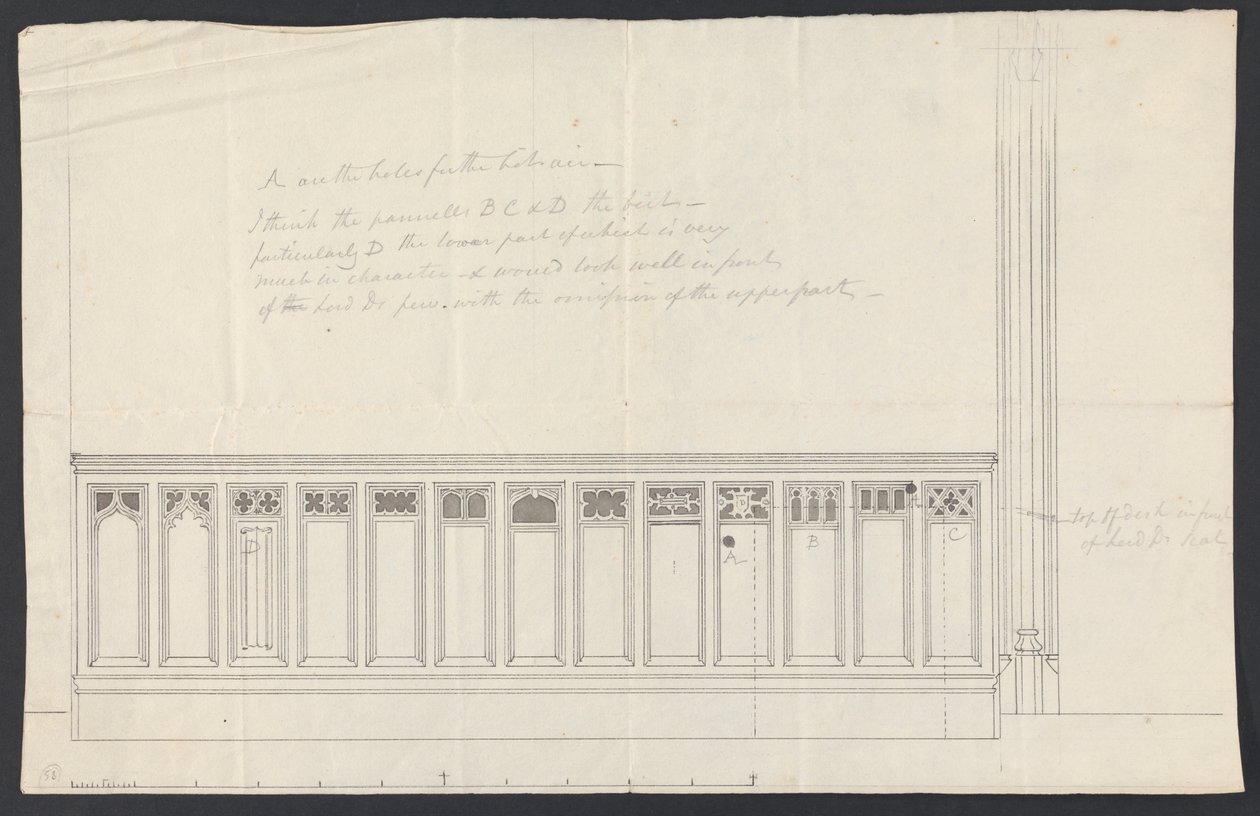 A are the holes for the hot air —
I think the pannells B C & D the best —
particularly D the lower part of which is very
much in character — & would look well in front
of the Lord Ds pew. with the omission of the upper part —
D
A
B
A
C
top of desk in front
of Lord Ds Seat
58